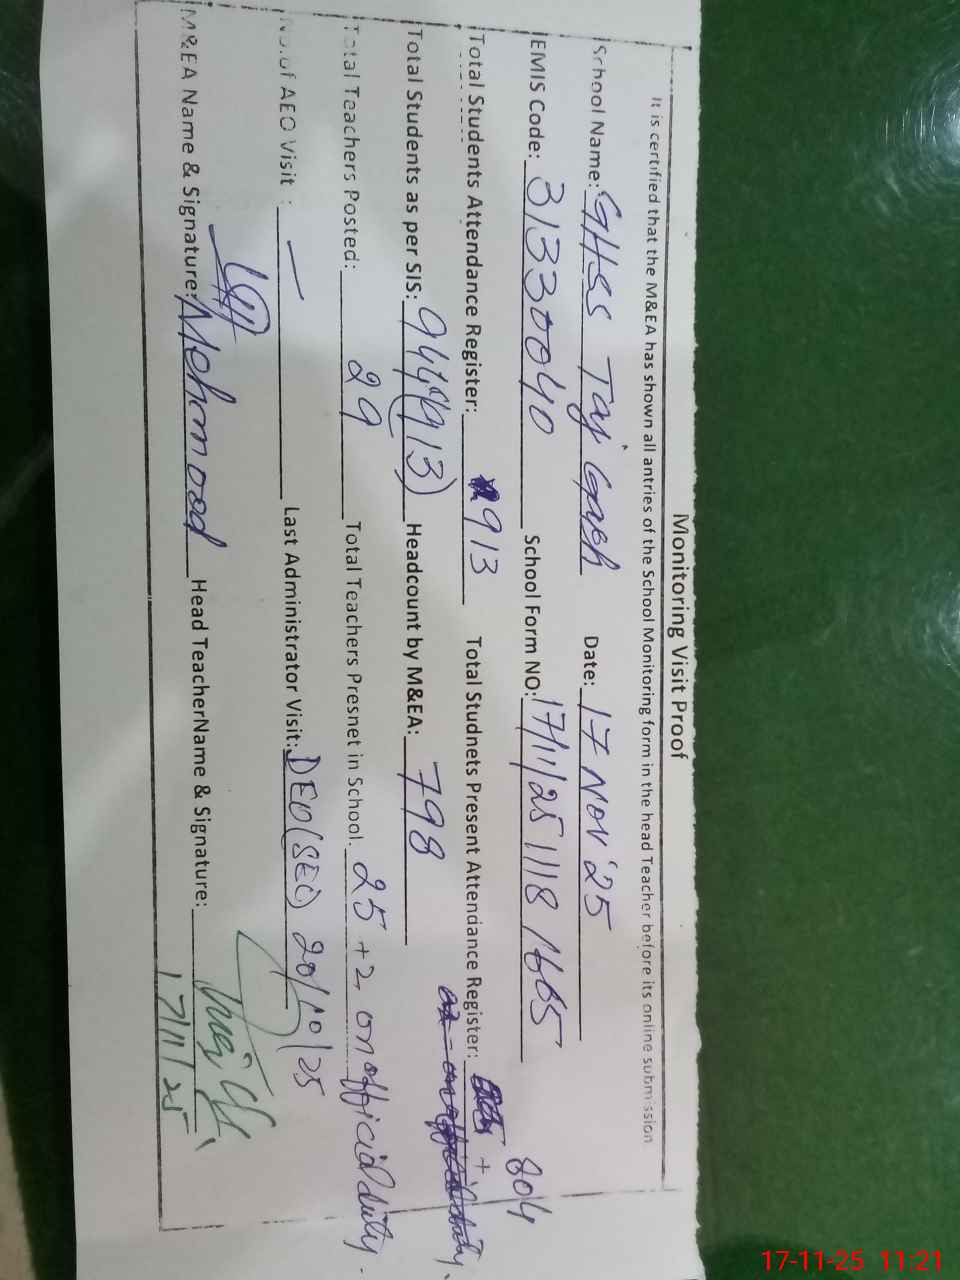 Monitoring Visit Proof
It is certified that the M&EA has shown all antries of the School Monitoring form in the head Teacher before its online submission
School Name: GHSS Taj Garh Date: 17 Nov '25
EMIS Code: 31330040 School Form NO: 17/11/25 1118 1665
Total Students Attendance Register: 913 Total Studnets Present Attendance Register: 804
Total Students as per SIS: 944 (913) Headcount by M&EA: 798
Total Teachers Posted: 29 Total Teachers Presnet in School. 25 + 2 on official duty.
No.of AEO Visit : — Last Administrator Visit: DEO(SE) 20/10/25
M&EA Name & Signature: Mehmood Head TeacherName & Signature:
17/11/25
17-11-25 11:21